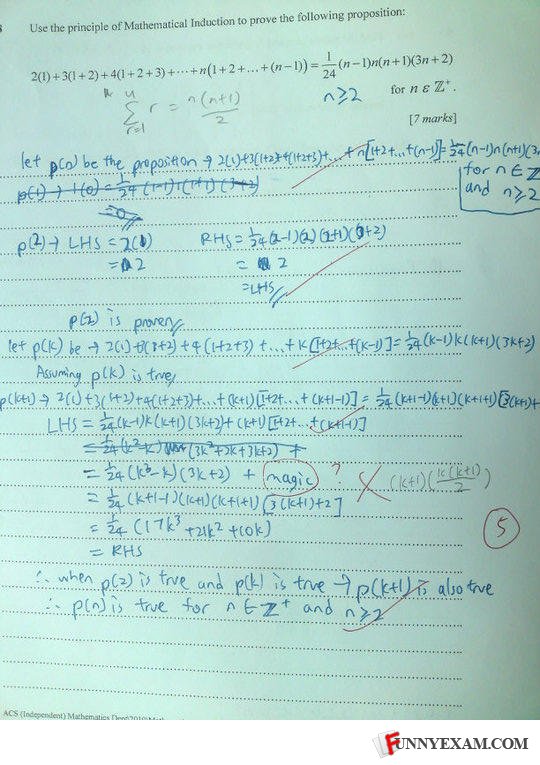 Use the principle of Mathematical Induction to prove the following proposition:
2(1)+3(1+2)+4(1+2+3)+⋯+n(1+2+...+(n−1)) = 1/24 (n−1)n(n+1)(3n+2)
n≥2
for n ε ℤ⁺.
∑ r = n(n+1)/2
r=1
[7 marks]
let p(n) be the proposition → 2(1)+3(1+2)+4(1+2+3)+... + n[1+2+...+(n-1)] = 1/24(n-1)n(n+1)(3n
for n∈ℤ
and n≥2
p(1) → 1(0) = 1/24(1-1)1(1+1)(3+2)
=0
p(2) → LHS = 2(1) RHS = 1/24(2-1)(2)(2+1)(+2)
= 2 = 2
=LHS
p(2) is proven
let p(k) be → 2(1)+3(1+2)+4(1+2+3)+...+k[1+2+...+(k-1)] = 1/24(k-1)k(k+1)(3k+2)
Assuming p(k) is true,
p(k+1) → 2(1)+3(1+2)+4(1+2+3)+...+(k+1)[1+2+...+(k+1-1)] = 1/24(k+1-1)(k+1)(k+1+1)[3(k+1)+
LHS = 1/24(k-1)k(k+1)(3k+2)+(k+1)[1+2+...+(k+1-1)]
= 1/24(k²-k)(3k²+2k+3k+2)+
= 1/24(k³-k)(3k+2) + magic ? (k+1)(k(k+1)/2)
= 1/24(k+1-1)(k+1)(k+1+1)[3(k+1)+2]
= 1/24(17k³+21k²+10k)
= RHS
5
∴ when p(2) is true and p(k) is true → p(k+1) is also true
∴ p(n) is true for n∈ℤ⁺ and n≥2
ACS (Independent) Mathematics Dept/2010/
FUNNYEXAM.COM